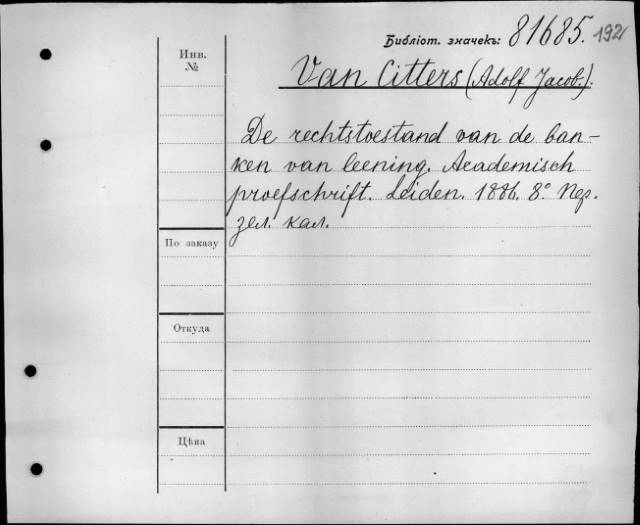 Библіот. значекъ: 81685. 192
Инв. №
Van Citters (Adolf Jacob.).
De rechtstoestand van de ban-
ken van leening. Academisch
proefschrift. Leiden. 1886. 8° Пер.
зел. кал.
По заказу
Откуда
Цѣна